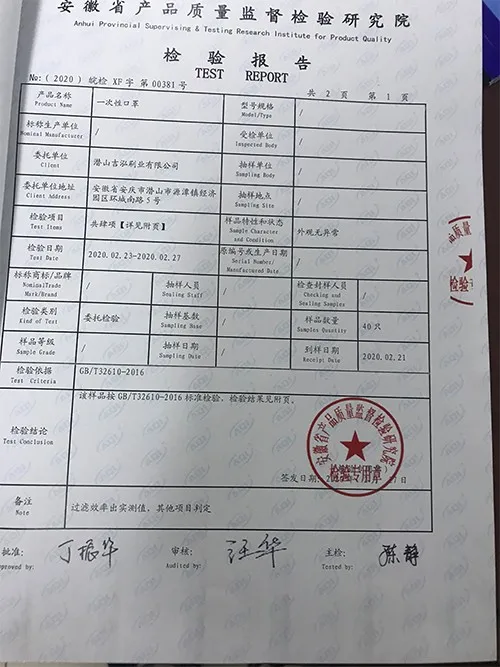 安徽省产品质量监督检验研究院
Anhui Provincial Supervising & Testing Research Institute for Product Quality
检 验 报 告
TEST REPORT
No:(2020) 皖检 XF字 第00381号
共 2 页 第 1 页
产品名称 Product Name 一次性口罩 型号规格 Model/Type /
标称生产单位 Nominal Manufacturer / 受检单位 Inspected Body /
委托单位 Client 潜山吉泓刷业有限公司 抽样单位 Sampling Body /
委托单位地址 Client Address 安徽省安庆市潜山市源潭镇经济园区环城南路5号 抽样地点 Sampling Site /
检验项目 Test Items 共肆项【详见附页】 样品特性和状态 Sample Character and Condition 外观无异常
检验日期 Test Date 2020.02.23-2020.02.27 原编号或生产日期 Serial Number/ Manufactured Date /
标称商标/品牌 NominalTrade Mark/Brand / 抽样人员 Sealing Staff / 检查封样人员 Checking and Sealing Samples /
检验类别 Kind of Test 委托检验 抽样基数 Sampling Base / 样品数量 Samples Quantity 40只
样品等级 Sample Grade / 抽样日期 Sampling Date / 到样日期 Receipt Date 2020.02.21
检验依据 Test Criteria GB/T32610-2016
检验结论 Test Conclusion 该样品按GB/T32610-2016标准检验，检验结果见附页。
安徽省产品质量监督检验研究院
检验专用章
签发日期:
备注 Note 过滤效率出实测值，其他项目判定
批准: 丁振华 审核: 汪华 主检: 陈静
Audited by: Tested by:
品质量
检验